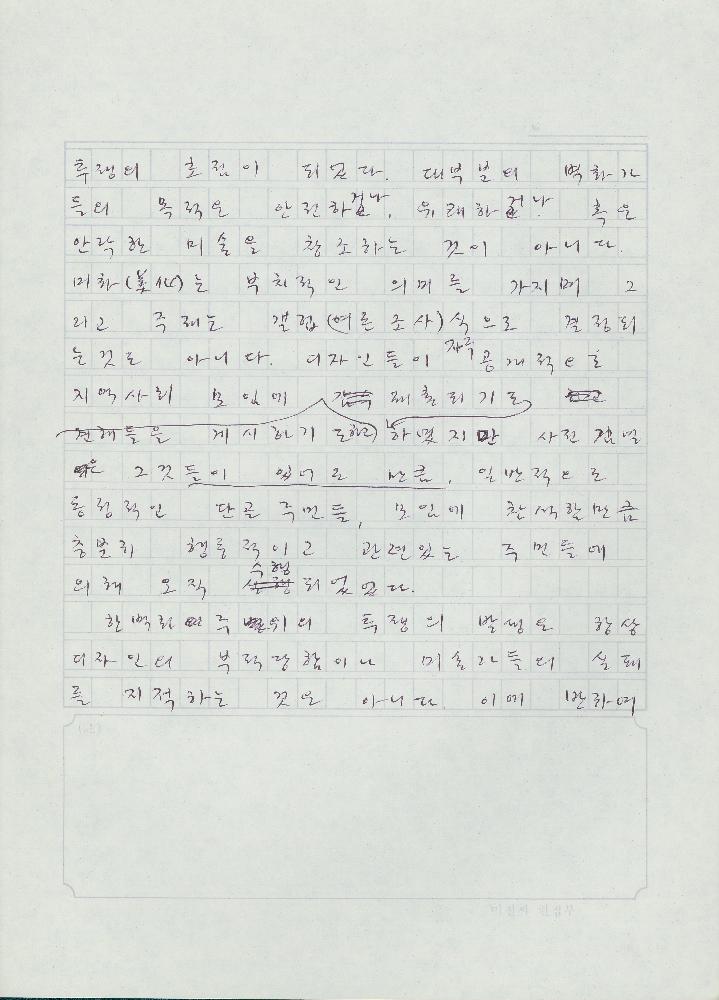 투쟁의 초점이 되었다. 대부분의 벽화가
들의 목적은 안전하거나, 위대하거나 혹은
안락한 미술을 창조하는 것이 아니다.
미화(美化)는 부차적인 의미를 가지며 그
리고 주제는 갤럽(여론조사)식으로 결정되
는것도 아니다. 디자인들이 자주 공개적으로
지역사회 모임에 제출되기도
견해들을 게시하기 도하고 하였지만 사전 검열
은 그것들이 있어온 만큼, 일반적으로
동정적인 단골 주민들, 모임에 참석할만큼
충분히 행동적이고 관련있는 주민들에
의해 오직 수행 되었었다.
한 벽화 주위의 투쟁의 발생은 항상
디자인의 부적당함이나 미술가들의 실패
를 지적하는 것은 아니다. 이에 반하여